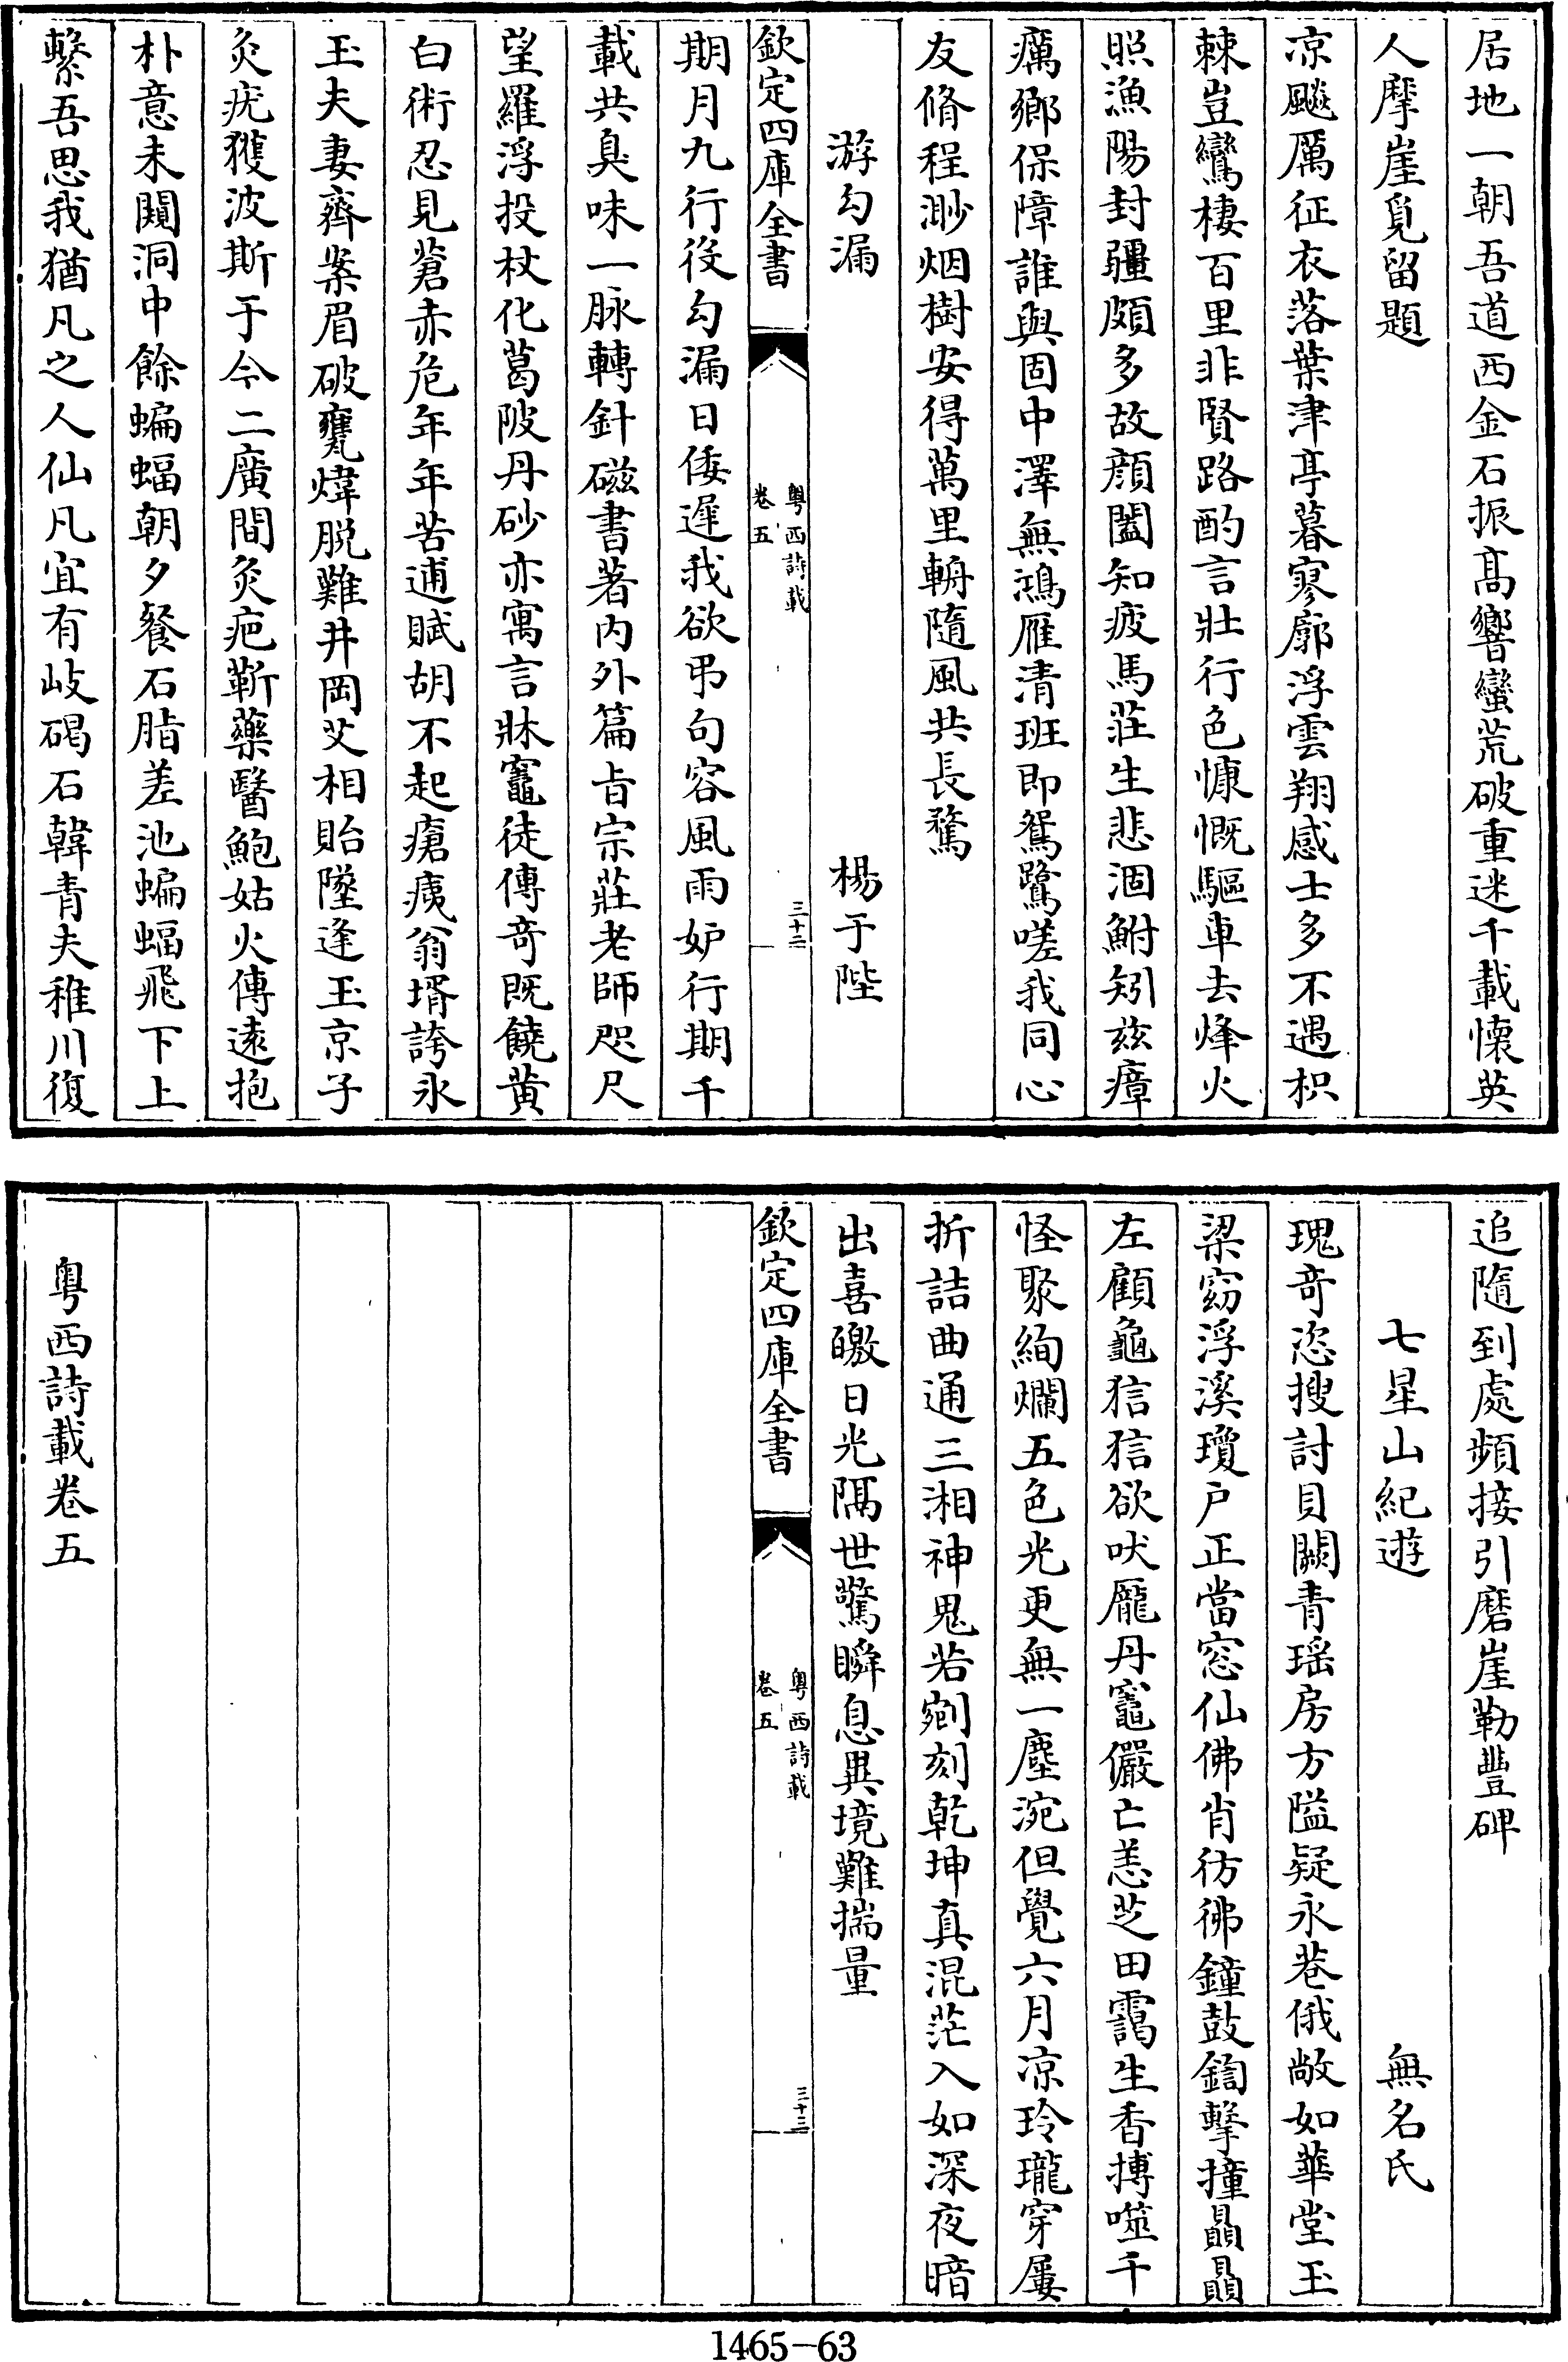 居地一朝吾道西金石振髙響蠻荒破重迷千載懐英
人摩崖覓留題
凉飈厲征衣落葉津亭暮寥廓浮雲翔感士多不遇枳
棘豈鸞棲百里非賢路酌言壯行色慷慨驅車去烽火
照漁陽封疆頗多故顔闔知疲馬莊生悲涸鮒矧兹瘴
癘鄉保障誰與固中澤無鴻雁清班即鴛鷺嗟我同心
友脩程渺烟樹安得萬里翰隨風共長騖
游勾漏
楊于陛
欽定四庫全書
粤西詩載
卷五
三十二
期月九行役勾漏日倭遲我欲弔句容風雨妒行期千
載共臭味一脉轉針磁書著内外篇㫖宗莊老師咫尺
望羅浮投杖化葛陂丹砂亦寓言牀竈徒傳竒既饒黄
白術忍見蒼赤危年年苦逋賦胡不起瘡痍翁壻誇氷
玉夫妻齊案眉破甕煒脱難井岡艾相貽墜逢玉京子
灸疣獲波斯于今二廣間灸疤蘄藥醫鮑姑火傳逺抱
朴意未闋洞中餘蝙蝠朝夕餐石脂差池蝙蝠飛下上
繫吾思我猶凡之人仙凡宜有岐碣石韓青夫稚川復
追隨到處頻接引磨崖勒豐碑
七星山紀逰
無名氏
瑰竒恣搜討貝闕青瑶房方隘疑永巷俄敞如華堂玉
梁窈浮溪瓊户正當窓仙佛肖彷彿鐘鼓鍧擊撞贔贔
左顧龜狺狺欲吠厖丹竈儼亡恙芝田靄生香搏噬千
怪聚絢爛五色光更無一塵涴但覺六月凉玲瓏穿屢
折詰曲通三湘神鬼若剜刻乾坤真混茫入如深夜暗
出喜皦日光隔世驚瞬息異境難揣量
欽定四庫全書
粤西詩載
卷五
三十三
粤西詩載卷五
1465-63